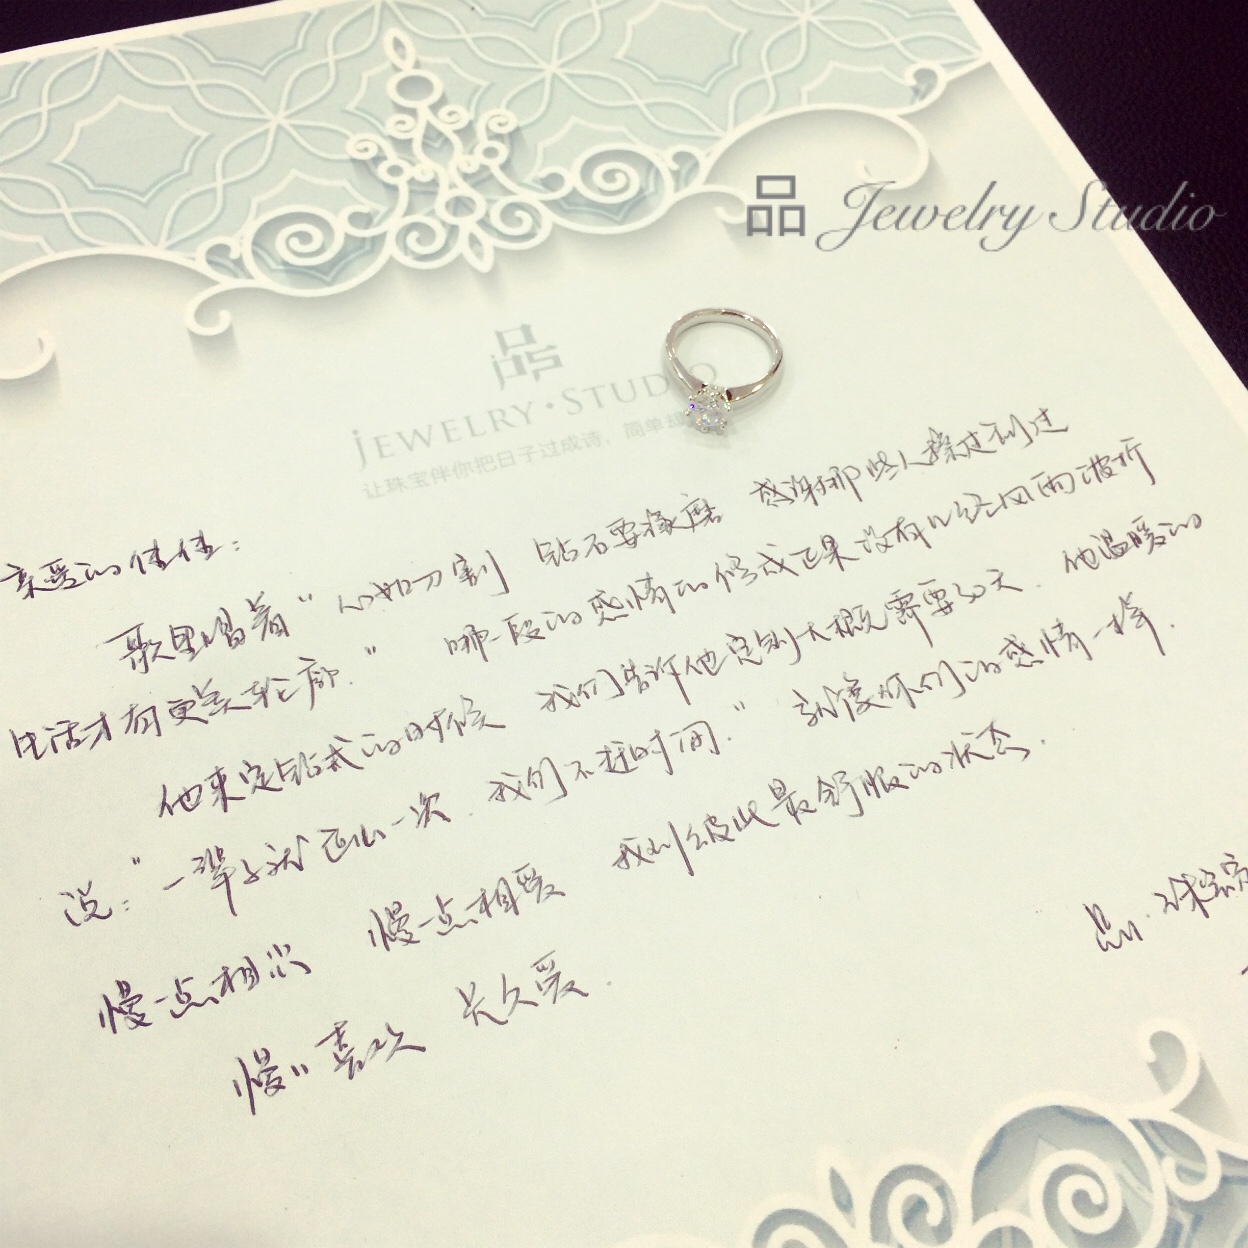 品 Jewelry Studio
品
JEWELRY·STUDIO
让珠宝伴你把日子过成诗，简单
亲爱的佳佳：
歌里唱着“心如刀割 钻石要琢磨 感谢那些人擦过刮过
生活才有更美轮廓.” 哪一段的感情的修成正果没有几经风雨波折
他来定钻戒的时候 我们告诉他定制大概需要30天. 他温暖的
说：“一辈子就这么一次. 我们不赶时间.” 就像你们的感情一样.
慢一点相恋 慢一点相爱 找到彼此最舒服的状态.
慢慢喜欢 长久爱.
品·珠宝